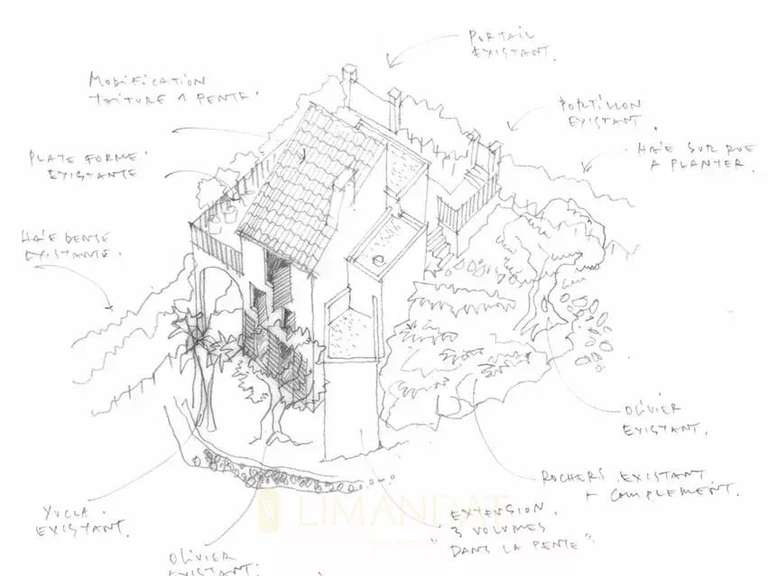 PORTAIL
EXISTANT.
MODIFICATION
TOITURE 1 PENTE.
PORTILLON
EXISTANT.
HAIE SUR RUE
A PLANTER.
PLATE FORME.
EXISTANTE
HAIE DENSE
EXISTANTE.
OLIVIER
EXISTANT.
ROCHERS EXISTANT
+ COMPLEMENT.
YUCCA.
EXISTANT.
LIMANDAT
EXTENSION.
3 VOLUMES
"DANS LA PENTE".
OLIVIER
EXISTANT.